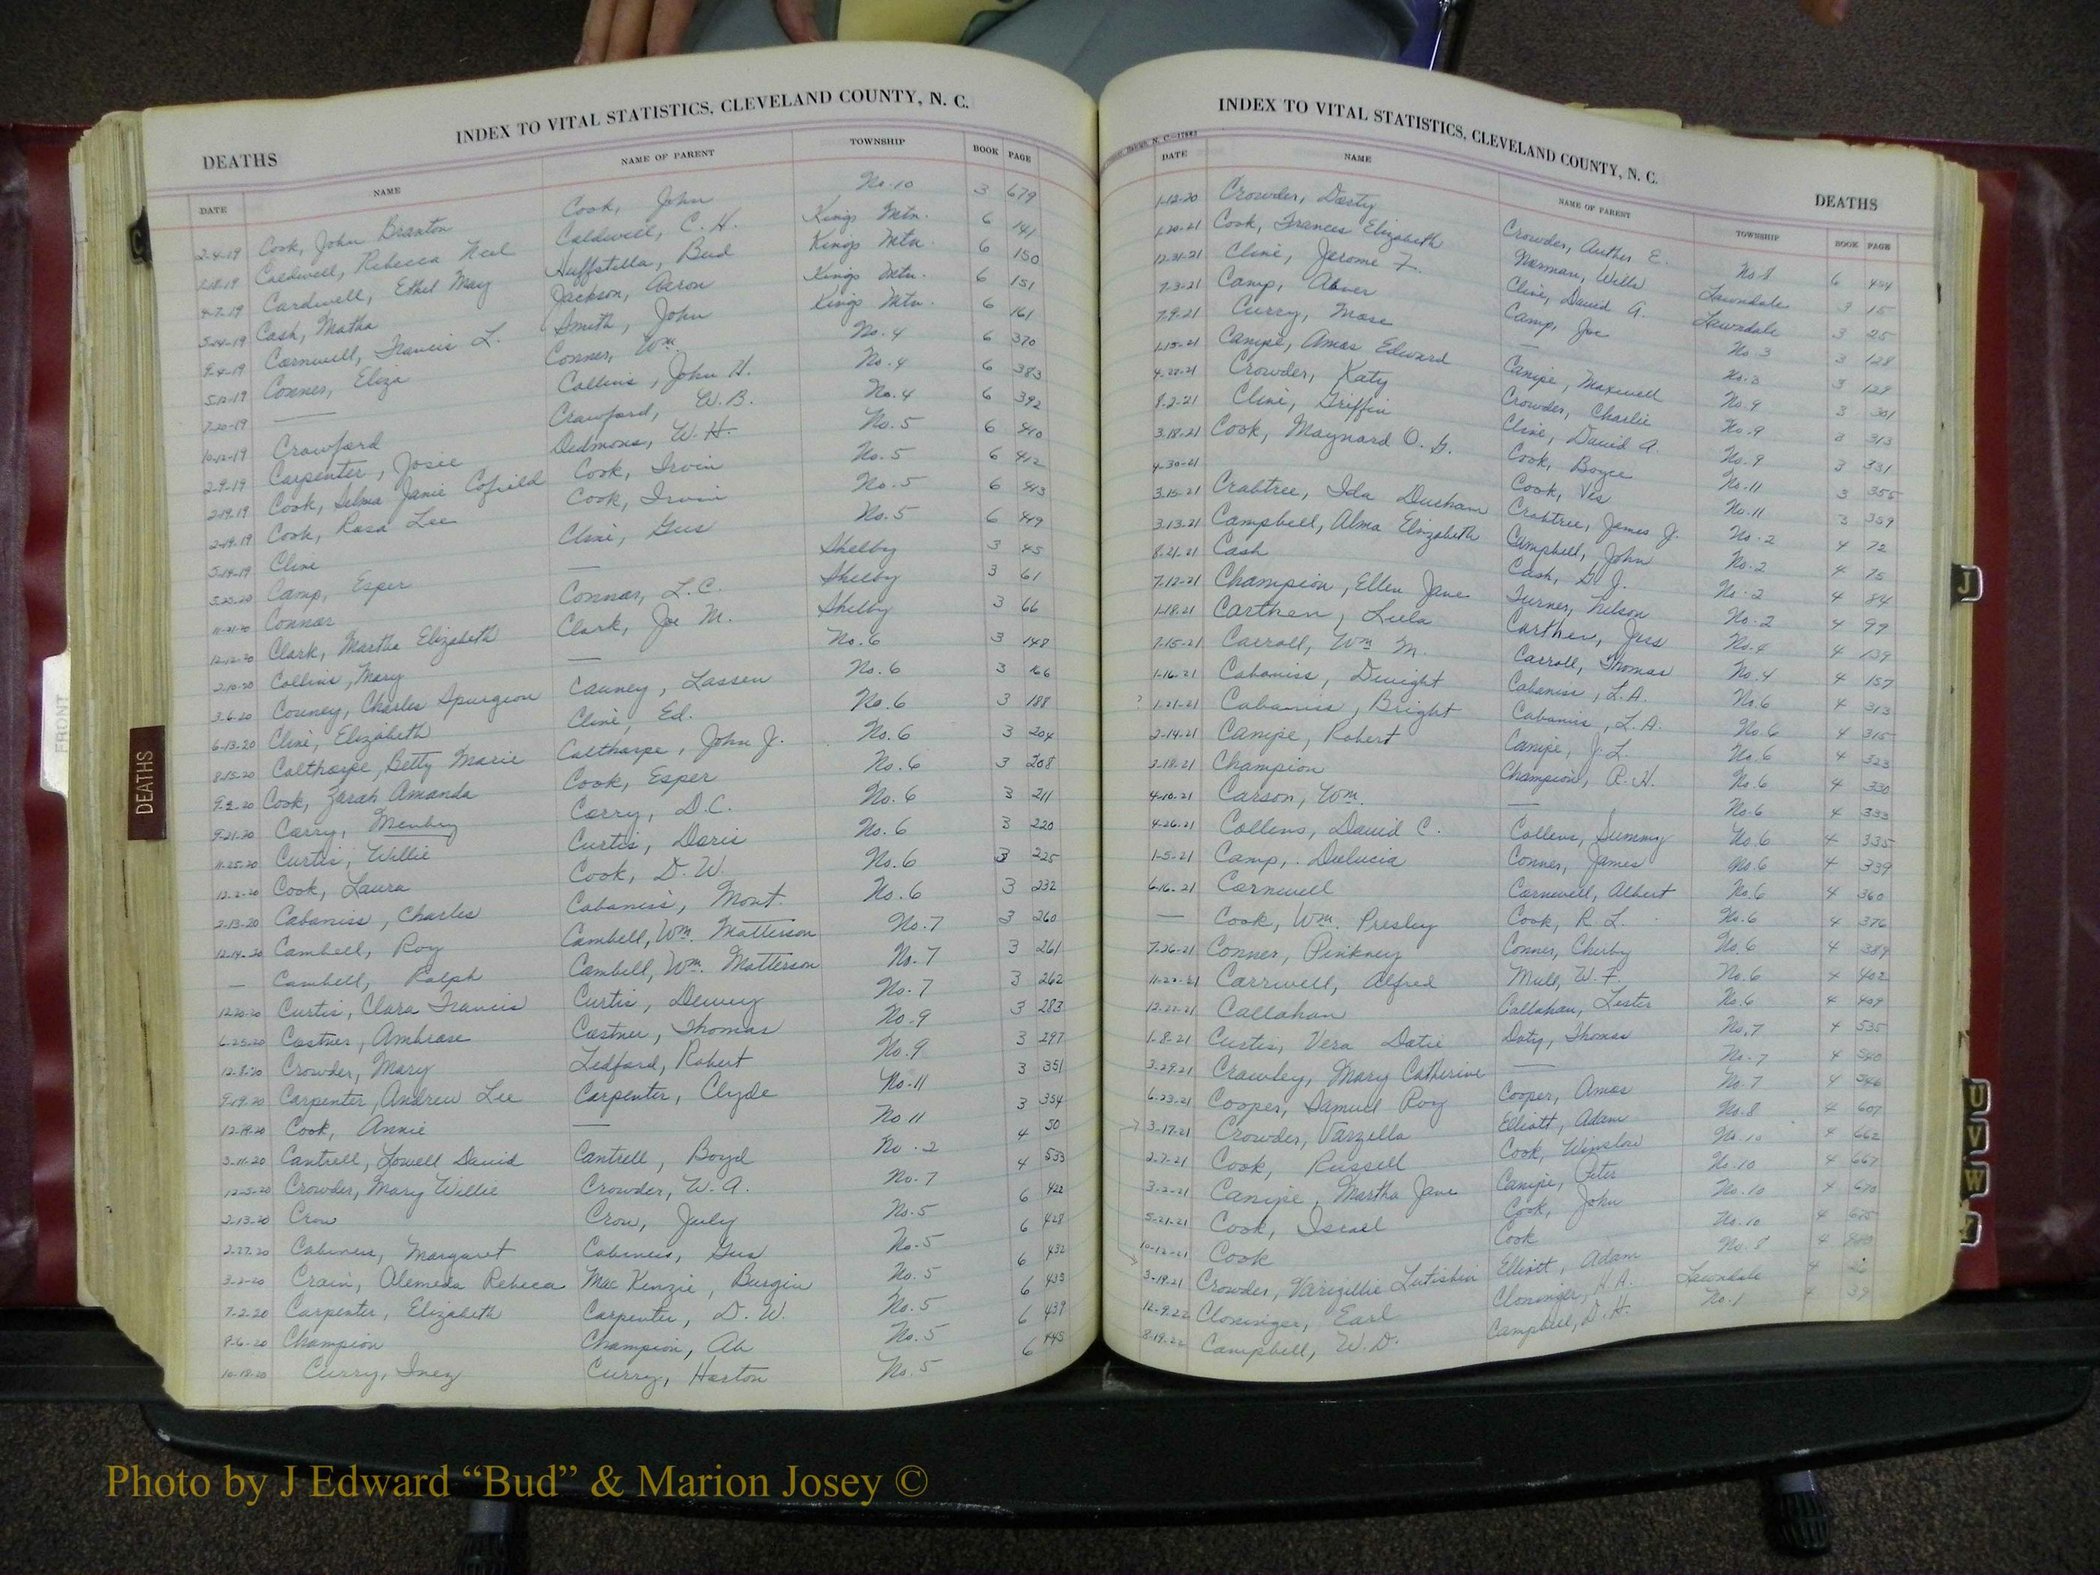 INDEX TO VITAL STATISTICS, CLEVELAND COUNTY, N. C.
DEATHS
DATE NAME NAME OF PARENT TOWNSHIP BOOK PAGE
2-4-19 Cook, John Branton Cook, John No. 10 3 679
Caldwell, Rebecca Neal Caldwell, C. H. Kings Mtn. 6 141
4-7-19 Cardwell, Ethel May Huffstilla, Bud Kings Mtn. 6 150
5-14-19 Cash, Matha Jackson, Aaron Kings Mtn. 6 151
9-4-19 Cornwell, Francis L. Smith, John Kings Mtn. 6 161
5-12-19 Conner, Eliza Conner, Wm No. 4 6 370
7-20-19 — Collins, John H. No. 4 6 383
10-12-19 Crawford Crawford, W. B. No. 4 6 392
2-9-19 Carpenter, Josie Dedmons, W. H. No. 5 6 410
2-19-19 Cook, Selma Janie Cofield Cook, Irvin No. 5 6 412
2-19-19 Cook, Rosa Lee Cook, Irvin No. 5 6 413
5-19-19 Cline Cline, Gus No. 5 6 419
5-25-20 Camp, Esper — Shelby 3 45
11-21-20 Connor Connor, L. C. Shelby 3 61
12-12-20 Clark, Martha Elizabeth Clark, Joe M. Shelby 3 66
2-10-20 Collins, Mary — No. 6 3 148
3-6-20 Couney, Charles Spurgeon Cauney, Lassen No. 6 3 166
6-13-20 Cline, Elizabeth Cline, Ed. No. 6 3 188
8-15-20 Calthorpe, Betty Marie Calthorpe, John J. No. 6 3 204
9-2-20 Cook, Zarah Amanda Cook, Esper No. 6 3 208
9-21-20 Carry, Carry, D. C. No. 6 3 211
11-25-20 Curtis, Willie Curtis, Doris No. 6 3 220
12-2-20 Cook, Laura Cook, D. W. No. 6 3 225
2-13-20 Cabaniss, Charles Cabaniss, Mont. No. 6 3 232
12-14-20 Cambell, Roy Cambell, Wm. Matterson No. 7 3 260
— Cambell, Ralph Cambell, Wm. Matterson No. 7 3 261
12-20-20 Curtis, Clara Francis Curtis, Dewey No. 7 3 262
6-25-20 Costner, Ambrose Costner, Thomas No. 9 3 283
12-8-20 Crowder, Mary Ledford, Robert No. 9 3 297
9-19-20 Carpenter, Andrew Lee Carpenter, Clyde No. 11 3 351
12-19-20 Cook, Annie — No 11 3 354
3-11-20 Cantrell, Lowell David Cantrell, Boyd No. 2 4 50
12-5-20 Crowder, Mary Willie Crowder, W. A. No. 7 4 533
2-13-20 Crow Crow, July No. 5 6 422
2-27-20 Cabiness, Margaret Cabiness, Gus No. 5 6 428
3-2-20 Crain, Alemeda Rebeca MacKenzie, Burgin No. 5 6 432
7-2-20 Carpenter, Elizabeth Carpenter, D. W. No. 5 6 433
8-6-20 Champion Champion, Ab No. 5 6 439
10-18-20 Curry, Inez Curry, Horton No. 5 6 445
INDEX TO VITAL STATISTICS, CLEVELAND COUNTY, N. C.
DEATHS
DATE NAME NAME OF PARENT TOWNSHIP BOOK PAGE
1-12-20 Crowder, Dorty Crowder, Auther E. No. 8 6 454
1-20-21 Cook, Frances Elizabeth Norman, Wills Lawndale 3 15
12-31-21 Cline, Jerome F. Cline, David A. Lawndale 3 25
7-3-21 Camp, Abner Camp, Joe No. 3 3 128
7-9-21 Curry, Mose — No. 3 3 129
1-15-21 Canipe, Amos Edward Canipe, Maxwell No. 9 3 301
4-22-21 Crowder, Katy Crowder, Charlie No. 9 3 313
8-2-21 Cline, Griffin Cline, David A. No. 9 3 331
3-18-21 Cook, Maynard O. G. Cook, Boyce No. 11 3 355
4-30-21 Cook, Ves No. 11 3 359
3-15-21 Crabtree, Ida Durham Crabtree, James J. No. 2 4 72
3-13-21 Campbell, Alma Elizabeth Campbell, John No. 2 4 75
8-21-21 Cash Cash, G. J. No. 2 4 84
7-12-21 Champion, Ellen Jane Turner, Nilson No. 2 4 99
1-18-21 Carthen, Lula Carthen, Jess No. 4 4 139
7-15-21 Carroll, Wm M. Carroll, Thomas No. 4 4 157
1-16-21 Cabaniss, Dwight Cabaniss, L. A. No. 6 4 313
1-21-21 Cabaniss, Bright Cabaniss, L. A. No. 6 4 315
2-14-21 Canipe, Robert Canipe, J. L. No. 6 4 323
2-18-21 Champion Champion, R. H. No. 6 4 330
4-10-21 Carson, Wm. — No. 6 4 333
4-26-21 Collins, David C. No. 6 4 335
1-5-21 Camp, Delucia Conner, James No. 6 4 339
6-16-21 Cornwell Cornwell, Albert No. 6 4 360
— Cook, Wm. Presley Cook, R. L. No. 6 4 376
7-26-21 Conner, Pinkney Conner, Cherby No. 6 4 389
11-20-21 Carrwell, Alfred Mull, W. F. No. 6 4 402
12-22-21 Callahan Callahan, Lester No. 6 4 409
1-8-21 Curtis, Vera Datie Doty, Thomas No. 7 4 535
3-29-21 Crawley, Mary Catherine — No. 7 4 540
6-23-21 Cooper, Samuel Roy Cooper, Amos No. 7 4 546
3-17-21 Crowder, Varzella Elliott, Adam No. 8 4 607
2-7-21 Cook, Russell Cook, Winslow No. 10 4 662
3-2-21 Canipe, Martha Jane Canipe, Peter No. 10 4 667
5-21-21 Cook, Israel Cook, John No. 10 4 670
10-12-21 Cook Cook No. 10 4 675
3-19-21 Crowder, Varzillie Lutishia Elliott, Adam No. 8 4
12-9-22 Cloninger, Earl Cloninger, H. A. Lawndale 4
8-19-22 Campbell, W. D. Campbell, D. H. No. 1 4 39
C
FRONT
DEATHS
J
U
V
W
Photo by J Edward “Bud” & Marion Josey ©